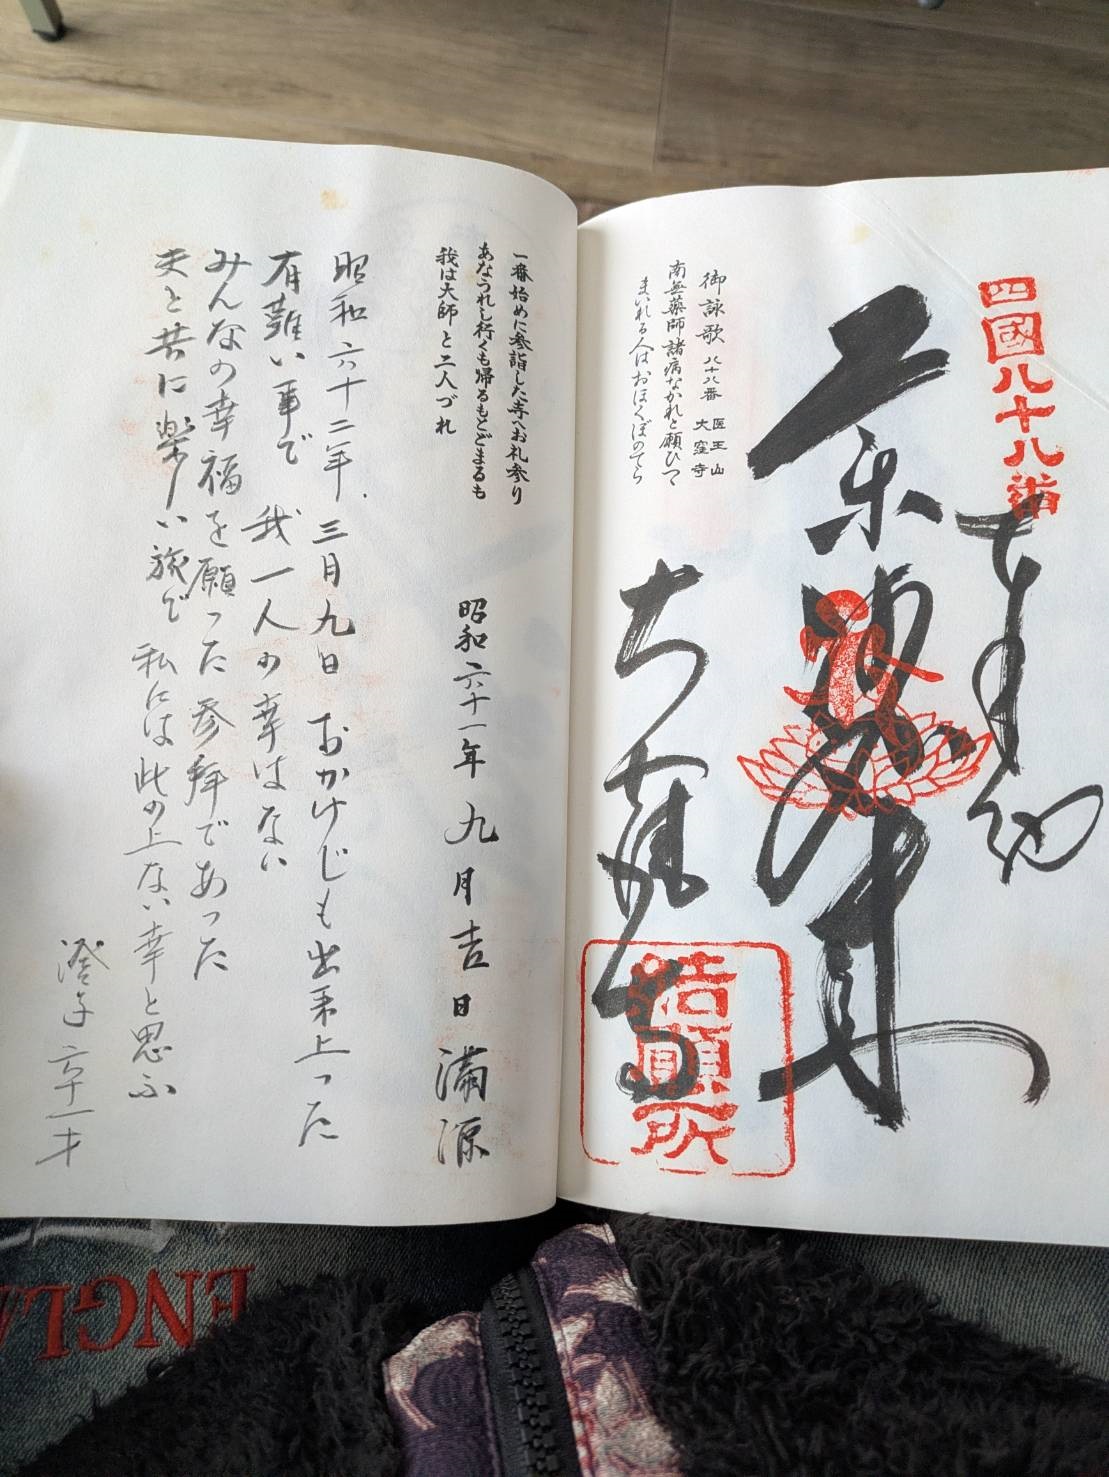 四國八十八番
奉納
大窪寺
結願所
御詠歌 八十八番 医王山 大窪寺
南無薬師諸病なかれと願ひつ
まいれる人はおほくぼのてら
一番始めに参詣した寺へお礼参り
あなうれし行くも帰るもとどまるも
我は大師と二人づれ
昭和六十一年九月吉日 満源
昭和六十二年、三月九日 おかけじも出来上った
有難い事で 我一人の幸はない
みんなの幸福を願った参拝であった
夫と共に楽しい旅で 私には此の上ない幸と思ふ
澄子 六十一才
ENGLA